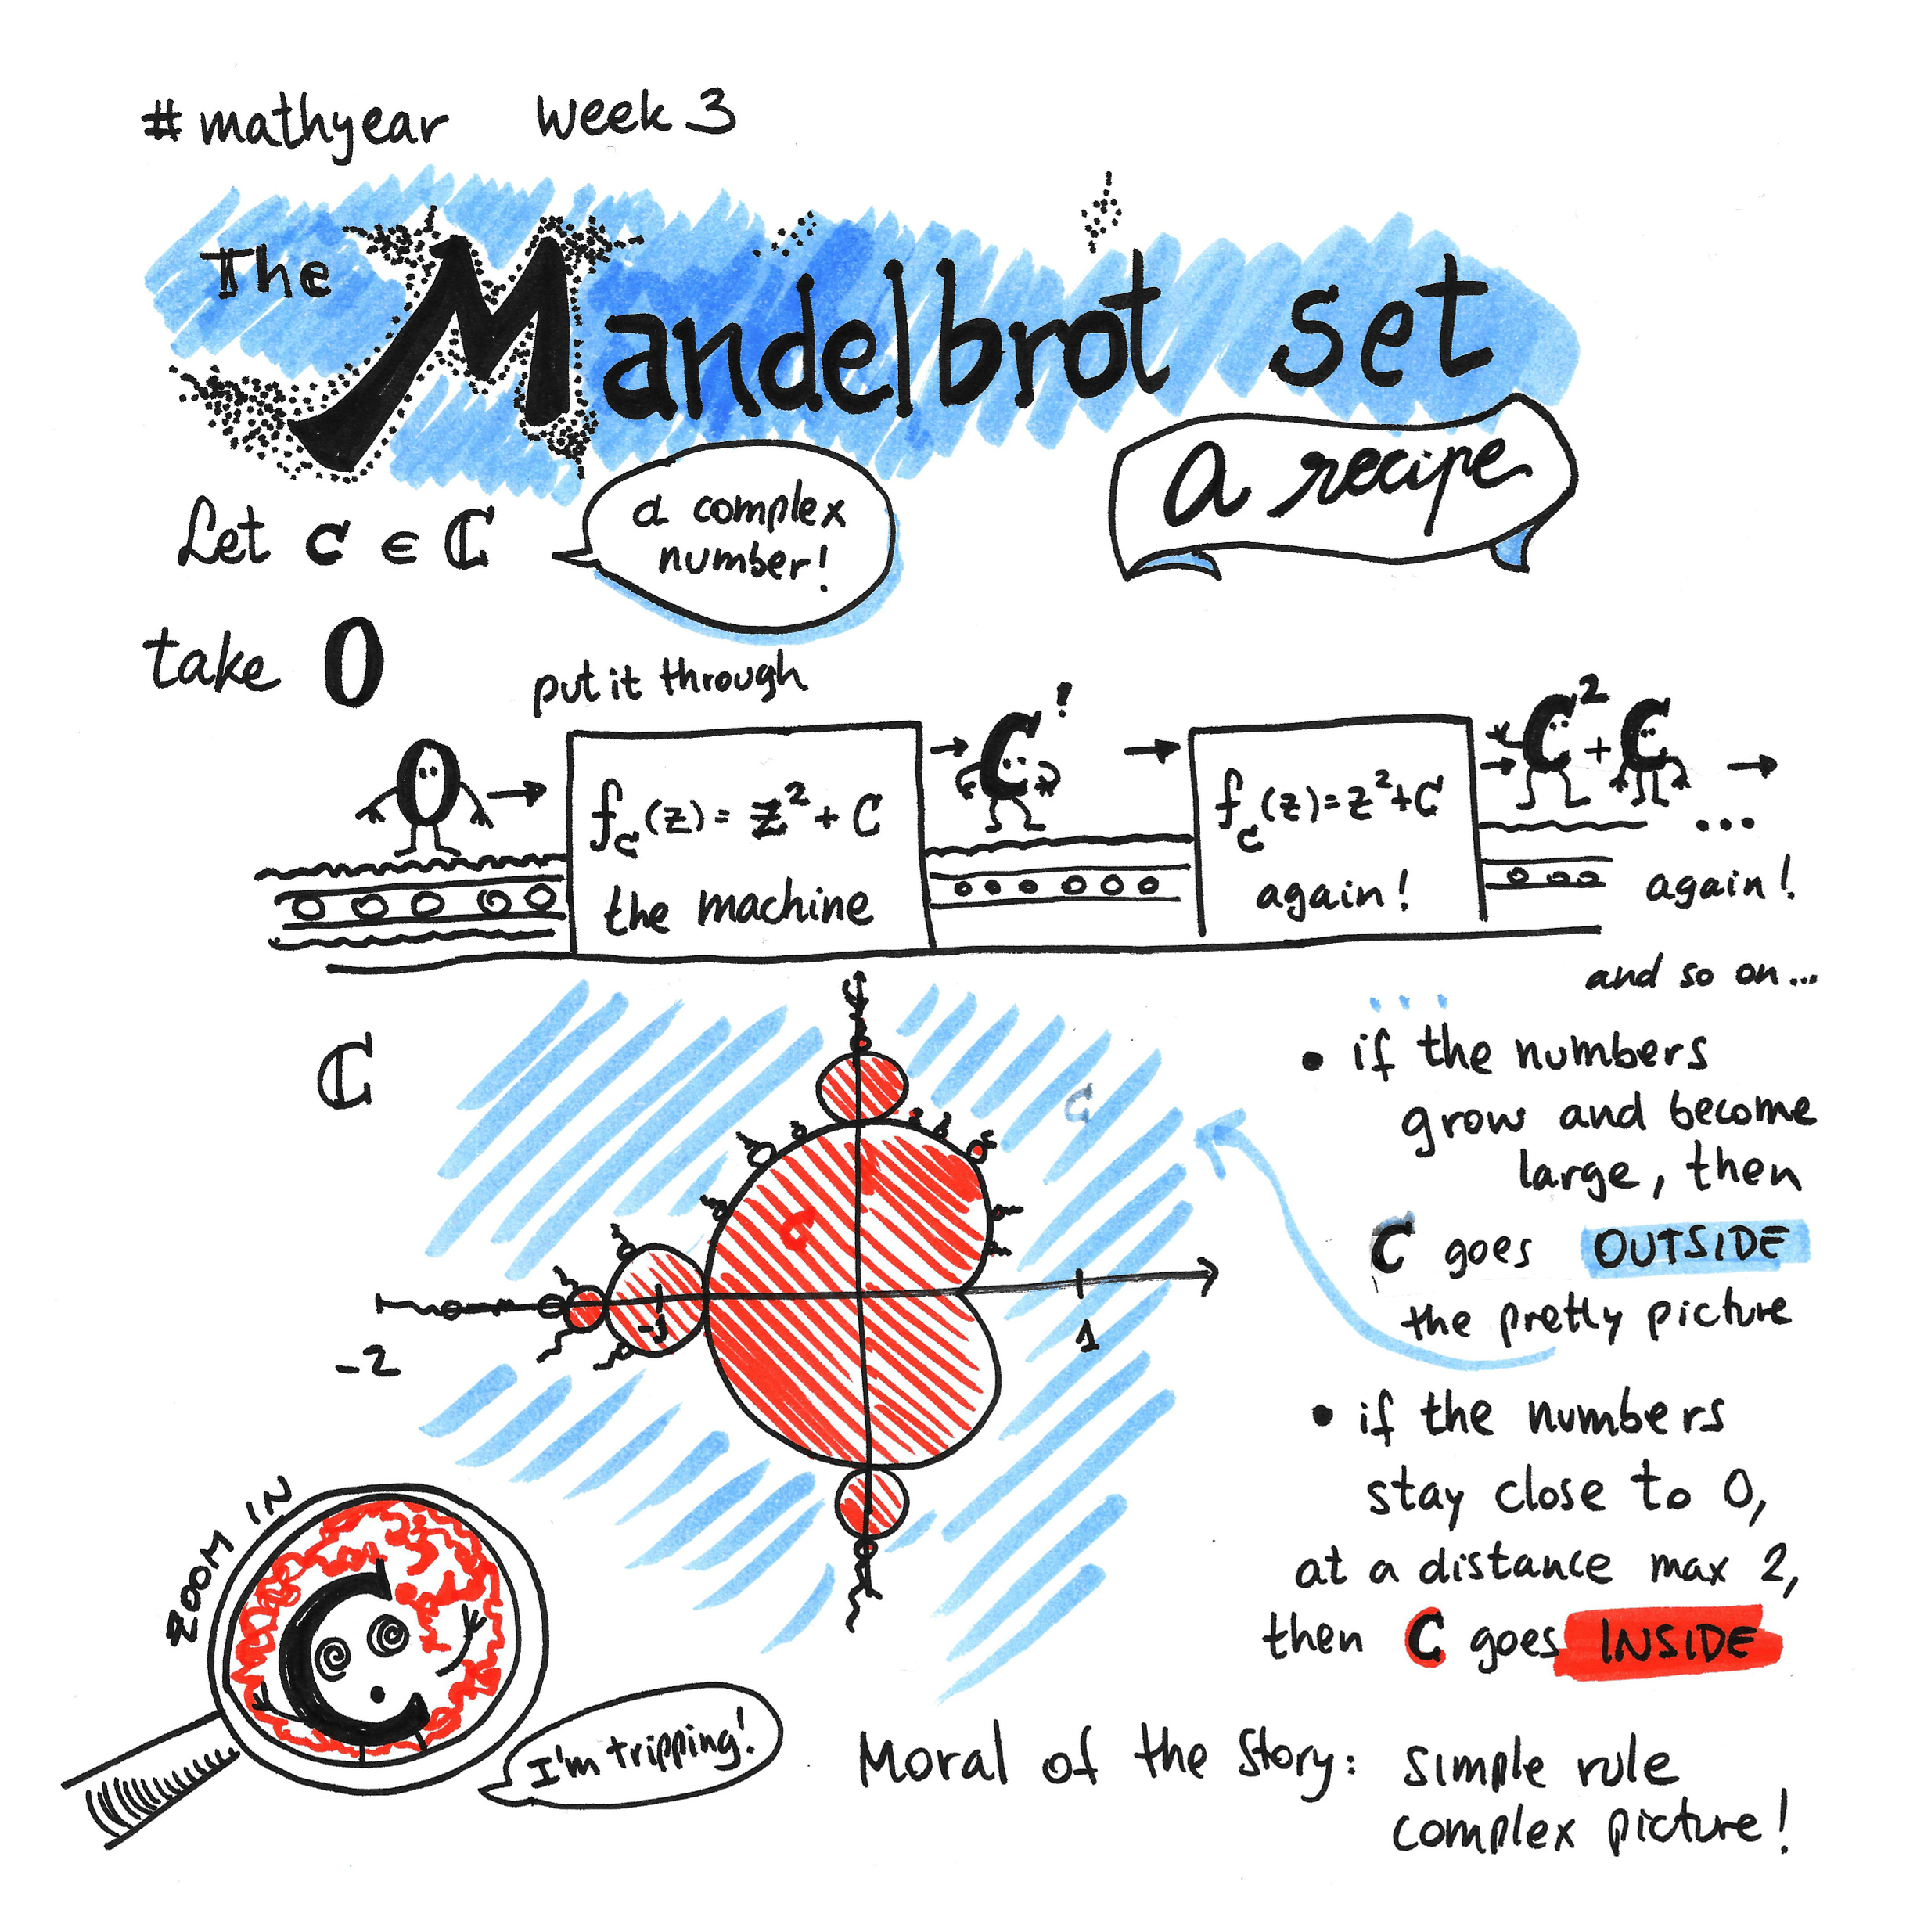 # mathyear week 3
The Mandelbrot set
a recipe
Let c ∈ ℂ
a complex
number!
take 0
put it through
0 → f_c(z) = z² + c → c! → f_c(z) = z² + c → c² + c →
the machine
again!
...
again!
and so on...
ℂ
• if the numbers
grow and become
large, then
C goes OUTSIDE
the pretty picture
C
C
-2
-1
1
• if the numbers
stay close to 0,
at a distance max 2,
then C goes INSIDE
ZOOM IN
C
I'm tripping!
Moral of the story: simple rule
complex picture!